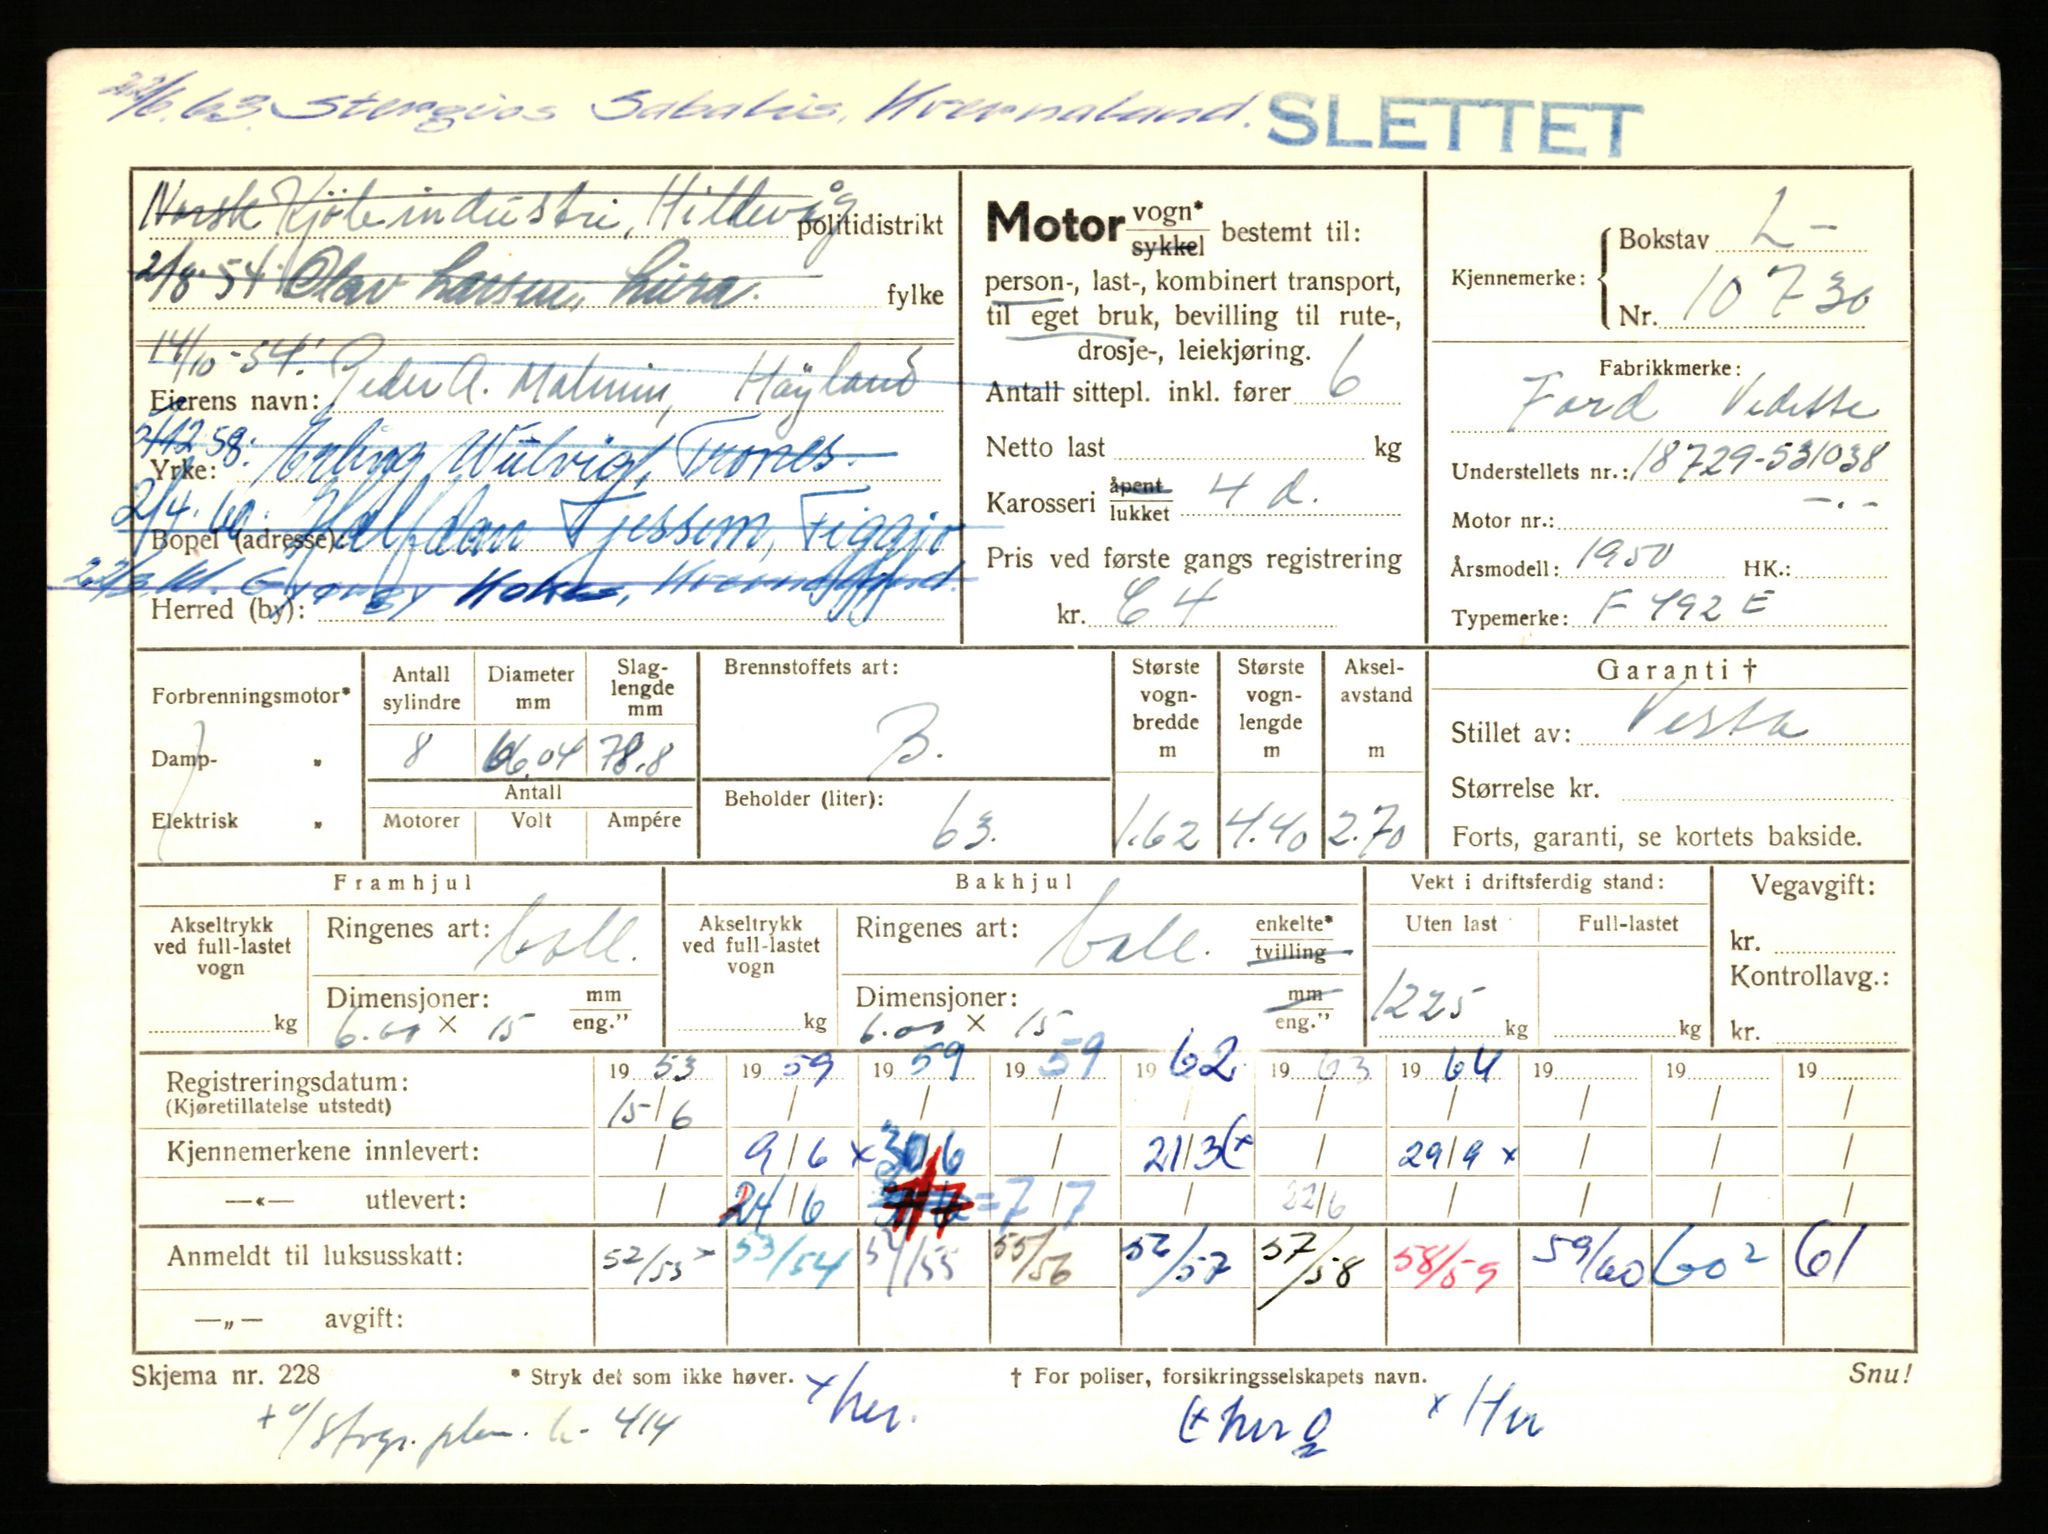 22/6.63. Stergios Sabalis, Kvernaland. SLETTET
Norsk Kjøleindustri, Hillevåg politidistrikt
2/8-54 Olav Larsen, Lura. fylke
14/10-54. Peder A. Malmin, Høyland
Eierens navn:
2/12.58. Erling Wiltvig, Trones.
Yrke:
2/4.60. Halfdan Tjessem, Figgjo
Bopel (adresse):
Kvernaland.
Herred (by):
Motor vogn* sykkel bestemt til:
person-, last-, kombinert transport,
til eget bruk, bevilling til rute-,
drosje-, leiekjøring.
Antall sittepl. inkl. fører 6
Netto last kg
Karosseri åpent lukket 4 d.
Pris ved første gangs registrering
kr. C 4
Kjennemerke: Bokstav L-
Nr. 10730
Fabrikkmerke:
Ford Vedette
Understellets nr.: 18729-531038
Motor nr.: -.-
Årsmodell: 1950 HK.:
Typemerke: F 492 E
Forbrenningsmotor*
Damp- "
Elektrisk "
Antall sylindre 8
Diameter mm 66.04
Slaglengde mm 78.8
Antall
Motorer Volt Ampére
Brennstoffets art:
B.
Beholder (liter):
63.
Største vognbredde m 1.62
Største vognlengde m 4.40
Akselavstand m 2.70
Garanti †
Stillet av: Vesta
Størrelse kr.
Forts, garanti, se kortets bakside.
Framhjul
Akseltrykk ved full-lastet vogn kg
Ringenes art: ball.
Dimensjoner: mm eng."
6.00 × 15
Bakhjul
Akseltrykk ved full-lastet vogn kg
Ringenes art: ball. enkelte* tvilling
Dimensjoner: mm eng."
6.00 × 15
Vekt i driftsferdig stand:
Uten last Full-lastet
1225 kg kg
Vegavgift:
kr.
Kontrollavg.:
kr.
Registreringsdatum: 1953 1959 1959 1959 1962 1963 1964 19 19 19
(Kjøretillatelse utstedt) 15/6 / / / / / / / / /
Kjennemerkene innlevert: / 9/6 x 30/6 / 21/3 (x / 29/9 x / / /
—«— utlevert: / 24/6 = 7/7 / 22/6 / / / /
Anmeldt til luksusskatt: 52/53 x 53/54 54/55 55/56 56/57 57/58 58/59 59/60 60² 61
—„— avgift:
Skjema nr. 228 * Stryk det som ikke høver. † For poliser, forsikringsselskapets navn. Snu!
x her. x Her
414